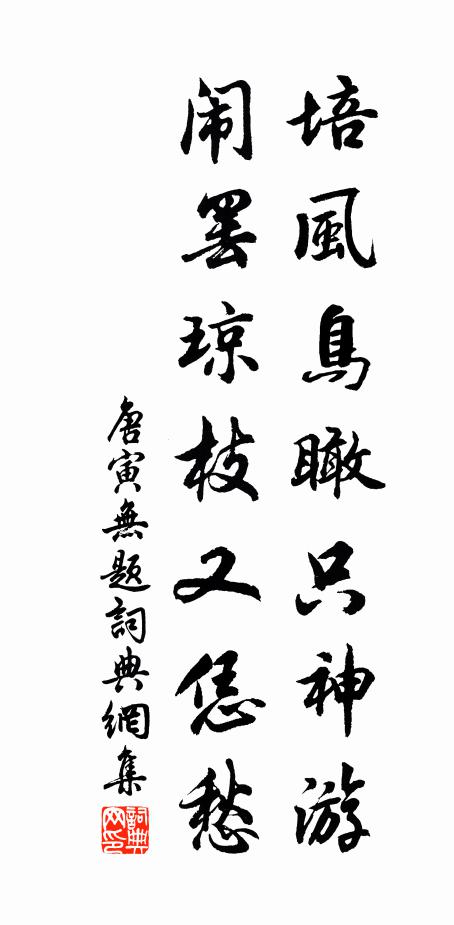 培風鳥瞰只神游
闹罢琼枝又恁愁
唐寅無题詞典網集
詞典网印